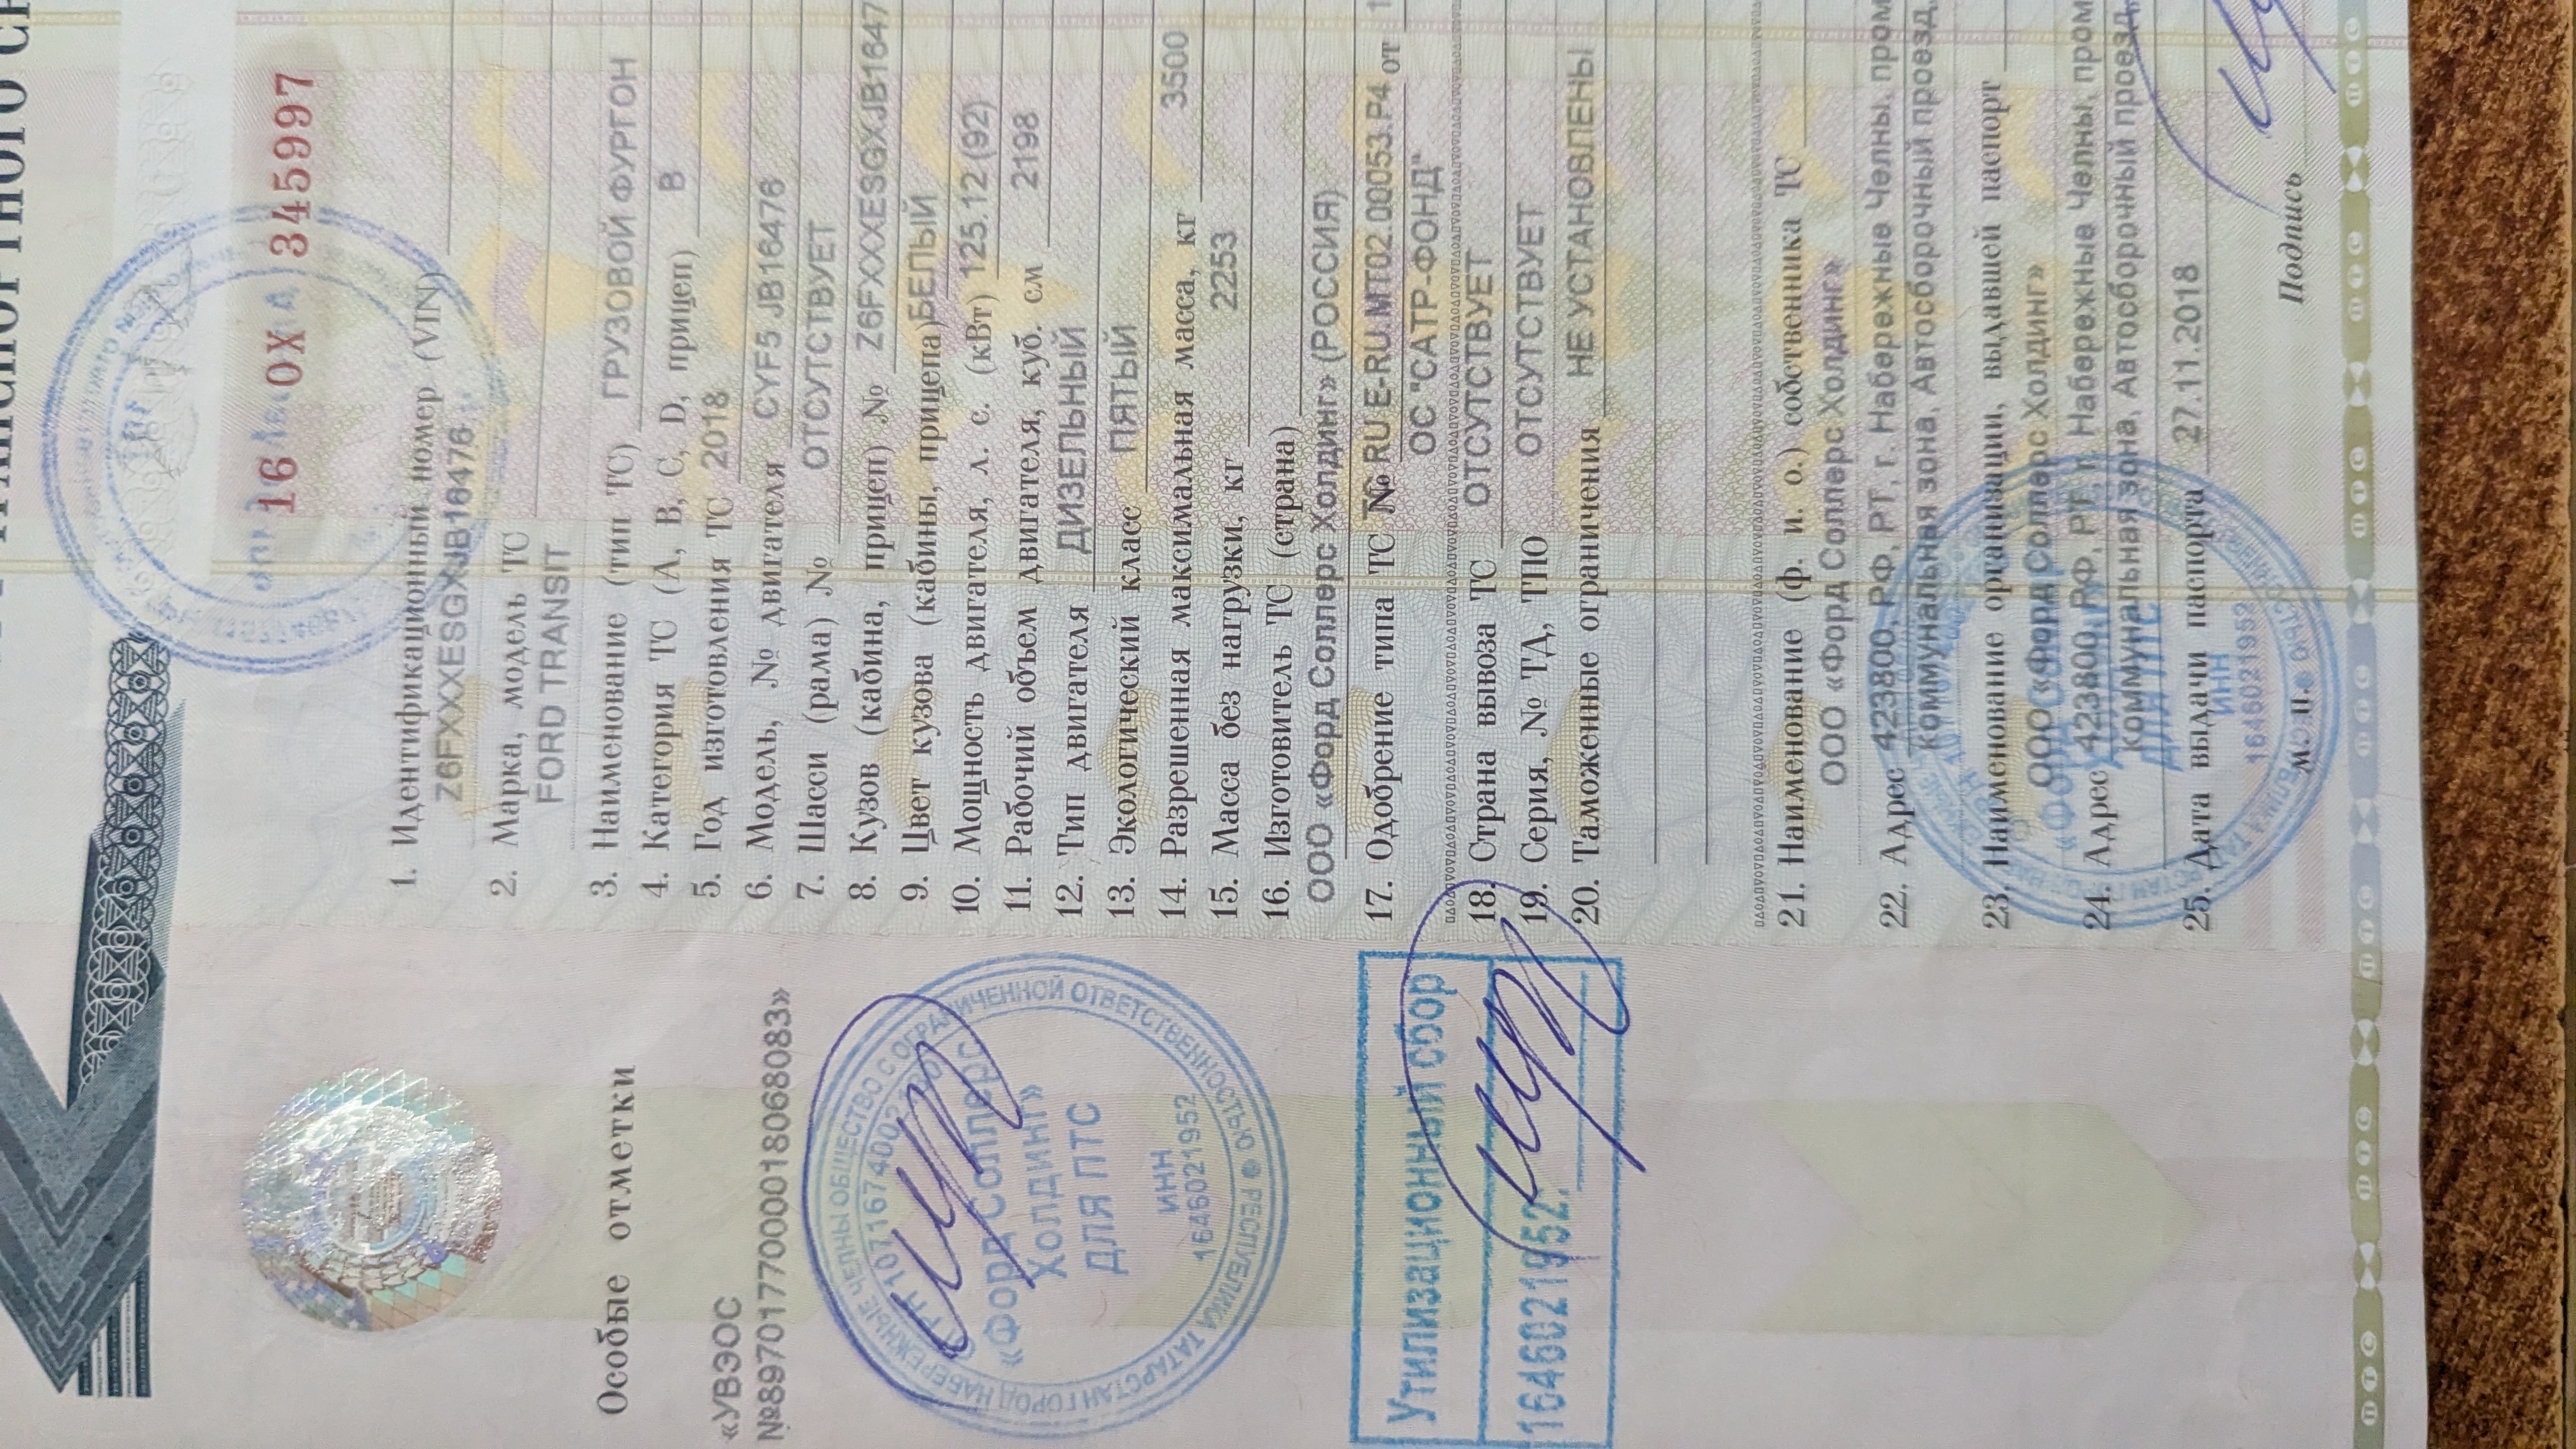 16 ОХ 345997
Особые отметки
«УВЭОС
№897017700001806808З»
«Форд Соллерс
Холдинг»
ДЛЯ ПТС
ИНН
1646021952
Утилизационный сбор
1646021952
1. Идентификационный номер (VIN)
Z6FXXXESGXJB16476
2. Марка, модель ТС
FORD TRANSIT
3. Наименование (тип ТС) ГРУЗОВОЙ ФУРГОН
4. Категория ТС (A, B, C, D, прицеп) B
5. Год изготовления ТС 2018
6. Модель, № двигателя CYF5 JB16476
7. Шасси (рама) № ОТСУТСТВУЕТ
8. Кузов (кабина, прицеп) № Z6FXXXESGXJB1647
9. Цвет кузова (кабины, прицепа) БЕЛЫЙ
10. Мощность двигателя, л. с. (кВт) 125.12 (92)
11. Рабочий объем двигателя, куб. см 2198
12. Тип двигателя ДИЗЕЛЬНЫЙ
13. Экологический класс ПЯТЫЙ
14. Разрешенная максимальная масса, кг 3500
15. Масса без нагрузки, кг 2253
16. Изготовитель ТС (страна)
ООО «Форд Соллерс Холдинг» (РОССИЯ)
17. Одобрение типа ТС № RU E-RU.MT02.00053.P4 от
ОС "САТР-ФОНД"
18. Страна вывоза ТС ОТСУТСТВУЕТ
19. Серия, № ТД, ТПО ОТСУТСТВУЕТ
20. Таможенные ограничения НЕ УСТАНОВЛЕНЫ
21. Наименование (ф. и. о.) собственника ТС
ООО «Форд Соллерс Холдинг»
22. Адрес 423800, РФ, РТ, г. Набережные Челны, пром
коммунальная зона, Автосборочный проезд,
23. Наименование организации, выдавшей паспорт
ООО «Форд Соллерс Холдинг»
24. Адрес 423800, РФ, РТ, г. Набережные Челны, пром
коммунальная зона, Автосборочный проезд,
25. Дата выдачи паспорта 27.11.2018
М. П.
Подпись
ИНН
1646021952